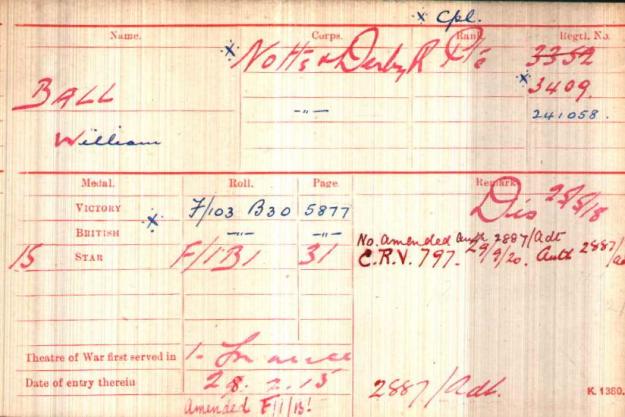 x Cpl.
Name. Corps. Rank. Regtl. No.
x Notts & Derby R Pte 3352
BALL x 3409.
-"- 241058.
William
Medal. Roll. Page. Remarks
VICTORY x F/103 B30 5877 Dis 25/5/18
BRITISH -"- -"-
No. amended auth 2887/Adt
15 STAR F/1B1 31 C.R.V. 797. 29/9/20. Auth 2887/
Theatre of War first served in 1- France
Date of entry therein 28.2.15 2887/Adt. K. 1380.
Amended F/1/B!